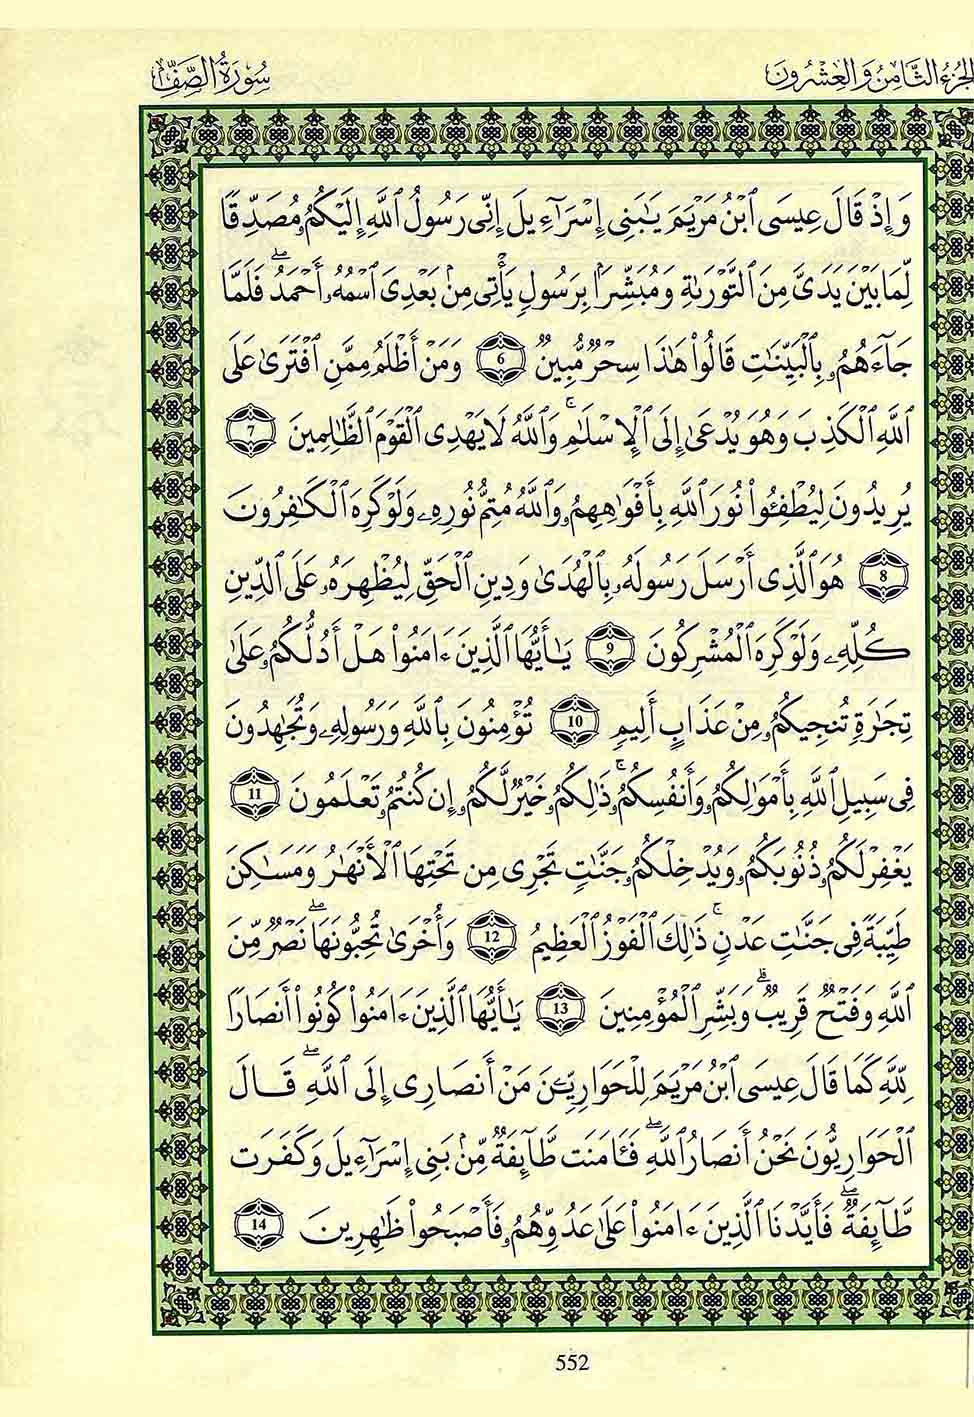 الجزء الثامن والعشرون
سورة الصف
وَإِذْ قَالَ عِيسَى ٱبْنُ مَرْيَمَ يَـٰبَنِىٓ إِسْرَٰٓءِيلَ إِنِّى رَسُولُ ٱللَّهِ إِلَيْكُمُۥ مُصَدِّقًا
لِّمَا بَيْنَ يَدَىَّ مِنَ ٱلتَّوْرَىٰةِ وَمُبَشِّرًۢا بِرَسُولٍ يَأْتِى مِنۢ بَعْدِىَ ٱسْمُهُۥٓ أَحْمَدُ ۖ فَلَمَّا
جَآءَهُمُۥ بِٱلْبَيِّنَـٰتِ قَالُوا۟ هَـٰذَا سِحْرٌ مُّبِينٌ 6 وَمَنْ أَظْلَمُ مِمَّنِ ٱفْتَرَىٰ عَلَى
ٱللَّهِ ٱلْكَذِبَ وَهُوَ يُدْعَىٰٓ إِلَى ٱلْإِسْلَـٰمِ ۚ وَٱللَّهُ لَا يَهْدِى ٱلْقَوْمَ ٱلظَّـٰلِمِينَ 7
يُرِيدُونَ لِيُطْفِـُٔوا۟ نُورَ ٱللَّهِ بِأَفْوَٰهِهِمُۥ وَٱللَّهُ مُتِمٌّ نُورَهُۥ وَلَوْ كَرِهَ ٱلْكَـٰفِرُونَ
8 هُوَ ٱلَّذِىٓ أَرْسَلَ رَسُولَهُۥ بِٱلْهُدَىٰ وَدِينِ ٱلْحَقِّ لِيُظْهِرَهُۥ عَلَى ٱلدِّينِ
كُلِّهِۦ وَلَوْ كَرِهَ ٱلْمُشْرِكُونَ 9 يَـٰٓأَيُّهَا ٱلَّذِينَ ءَامَنُوا۟ هَلْ أَدُلُّكُمُۥ عَلَىٰ
تِجَـٰرَةٍ تُنجِيكُمُۥ مِنْ عَذَابٍ أَلِيمٍ 10 تُؤْمِنُونَ بِٱللَّهِ وَرَسُولِهِۦ وَتُجَـٰهِدُونَ
فِى سَبِيلِ ٱللَّهِ بِأَمْوَٰلِكُمُۥ وَأَنفُسِكُمُۥ ۚ ذَٰلِكُمُۥ خَيْرٌ لَّكُمُۥٓ إِن كُنتُمُۥ تَعْلَمُونَ 11
يَغْفِرْ لَكُمُۥ ذُنُوبَكُمُۥ وَيُدْخِلْكُمُۥ جَنَّـٰتٍ تَجْرِى مِن تَحْتِهَا ٱلْأَنْهَـٰرُ وَمَسَـٰكِنَ
طَيِّبَةً فِى جَنَّـٰتِ عَدْنٍ ۚ ذَٰلِكَ ٱلْفَوْزُ ٱلْعَظِيمُ 12 وَأُخْرَىٰ تُحِبُّونَهَا ۖ نَصْرٌ مِّنَ
ٱللَّهِ وَفَتْحٌ قَرِيبٌ ۗ وَبَشِّرِ ٱلْمُؤْمِنِينَ 13 يَـٰٓأَيُّهَا ٱلَّذِينَ ءَامَنُوا۟ كُونُوٓا۟ أَنصَارًا
لِّلَّهِ كَمَا قَالَ عِيسَى ٱبْنُ مَرْيَمَ لِلْحَوَارِيِّـۧنَ مَنْ أَنصَارِىٓ إِلَى ٱللَّهِ ۖ قَالَ
ٱلْحَوَارِيُّونَ نَحْنُ أَنصَارُ ٱللَّهِ ۖ فَـَٔامَنَت طَّآئِفَةٌ مِّنۢ بَنِىٓ إِسْرَٰٓءِيلَ وَكَفَرَت
طَّآئِفَةٌ ۖ فَأَيَّدْنَا ٱلَّذِينَ ءَامَنُوا۟ عَلَىٰ عَدُوِّهِمُۥ فَأَصْبَحُوا۟ ظَـٰهِرِينَ 14
552